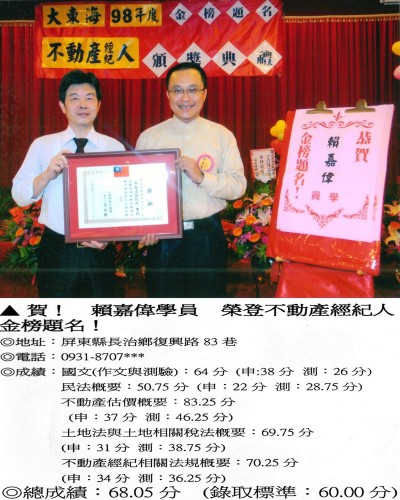 大東海 98年度 金榜題名
不動產經紀人 頒獎典禮
恭賀
賴嘉偉
同學
金榜題名！
▲ 賀！ 賴嘉偉學員 榮登不動產經紀人
金榜題名！
◎地址：屏東縣長治鄉復興路 83 巷
◎電話：0931-8707***
◎成績：國文(作文與測驗)：64 分 (申:38 分 測：26 分)
民法概要：50.75 分 (申：22 分 測：28.75 分)
不動產估價概要：83.25 分
(申：37 分 測：46.25 分)
土地法與土地相關稅法概要：69.75 分
(申：31 分 測：38.75 分)
不動產經紀相關法規概要：70.25 分
(申：34 分 測：36.25 分)
◎總成績：68.05 分 (錄取標準：60.00 分)